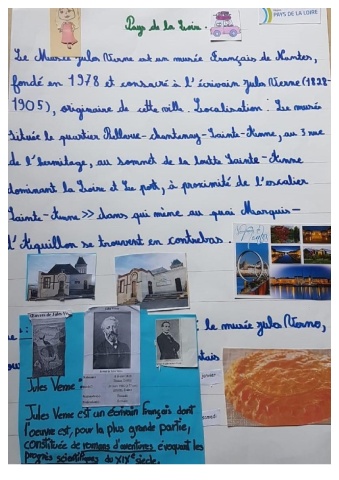 PAYS DE LA LOIRE
Pays de la Loire.
Le Musée Jules Verne est un musée Français de Nantes,
fondé en 1978 et consacré à l'écrivain Jules Verne (1828-
1905), originaire de cette ville. Localisation : Le musée
située le quartier Bellevue-Chantenay-Sainte-Anne, au 3 rue
de l'hermitage, au sommet de la butte Sainte-Anne
dominant la Loire et Le port, à proximité de l'escalier
Sainte-Anne >> dans qui mène au quai Marquis-
d'Aiguillon se trouvent en contrebas.
le musée Jules Verne,
Jules Verne
Jules Verne est un écrivain français dont
l'oeuvre est, pour la plus grande partie,
constituée de romans d'aventures évoquant les
progrès scientifiques du XIXe siècle.